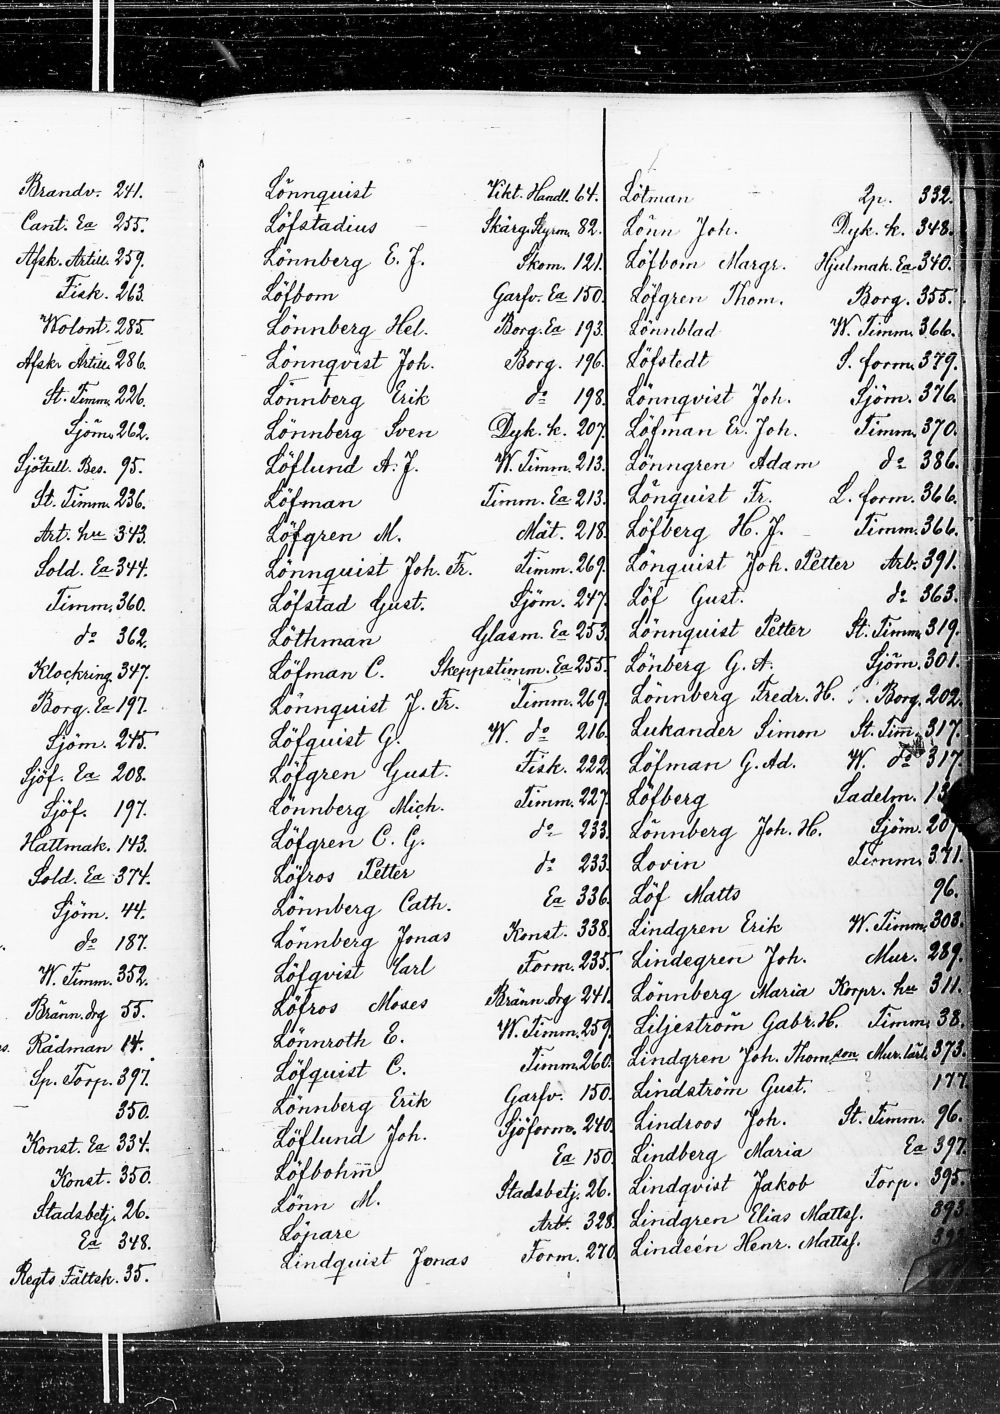 Brandv. 241.
Cant. Ea 255.
Afsk. Artill. 259.
Fisk. 263.
Wolont. 285.
Afskr Artill. 286.
St. Timm. 226.
Sjöm. 262.
Sjötull. Bes. 95.
St. Timm. 236.
Art. hu 343.
Sold. Ea 344.
Timm. 360.
do 362.
Klockring. 347.
Borg. Ea 197.
Sjöm. 245.
Sjöf. Ea 208.
Sjöf. 197.
Hattmak. 143.
Sold. Ea 374.
Sjöm. 44.
do 187.
W. Timm. 352.
Bränn. drg 55.
Rådman 14.
Sp. Torp. 397.
350.
Konst. Ea 334.
Konst. 350.
Stadsbetj. 26.
Ea 348.
Regts Fältsk. 35.
Lönnquist Vikt. Handl. 64.
Löfstadius Skärg. Styrm. 82.
Lönnberg E. J. Skom. 121.
Löfbom Garfv. Ea 150.
Lönnberg Hel. Borg. Ea 193.
Lönnqvist Joh. Borg. 196.
Lönnberg Erik do 198.
Lönnberg Sven Dyk. k. 207.
Löflund A. J. W. Timm. 213.
Löfman Timm. Ea 213.
Löfgren M. Mät. 218.
Lönnquist Joh. Fr. Timm. 269.
Löfstad Gust. Sjöm. 247.
Löthman Glasm. Ea 253.
Löfman C. Skeppstimm. Ea 255.
Lönnquist J. Fr. Timm. 269.
Löfquist G. W. do 216.
Löfgren Gust. Fisk. 222.
Lönnberg Mich. Timm. 227.
Löfgren C. G. do 233.
Löfros Petter do 233.
Lönnberg Cath. Ea 336.
Lönnberg Jonas Konst. 338.
Löfqvist Carl Form. 235.
Löfros Moses Bränn. drg 241.
Lönnroth E. W. Timm. 259.
Löfquist C. Timm. 260.
Lönnberg Erik Garfv. 150.
Löflund Joh. Sjöform. 240.
Löfbohm Ea 150.
Lönn M. Stadsbetj. 26.
Löpare Arb. 328.
Lindquist Jonas Form. 270.
Lötman 2p. 332.
Lönn Joh. Dyk. k. 348.
Löfbom Margr. Hjulmak. Ea 340.
Löfgren Thom. Borg. 355.
Lönnblad W. Timm. 366.
Löfstedt S. form. 379.
Lönnqvist Joh. Sjöm. 376.
Löfman Er. Joh. Timm. 370.
Lönngren Adam do 386.
Lönquist Fr. L. form. 366.
Löfberg H. J. Timm. 366.
Lönquist Joh. Petter Arb. 391.
Löf Gust. do 363.
Lönnquist Petter St. Timm. 319.
Lönberg G. A. Sjöm. 301.
Lönnberg Fredr. H. Borg. 202.
Lukander Simon St. Tim. 317.
Löfman G. Ad. W. do 317
Löfberg Sadelm.
Lönnberg Joh. H. Sjöm. 207
Lovin Timm. 371.
Löf Matts 96.
Lindgren Erik W. Timm. 303.
Lindegren Joh. Mur. 289.
Lönnberg Maria Korpr. hu 311.
Liljeström Gabr. H. Timm. 38.
Lindgren Joh. Thomson Mur. lärl. 373.
Lindström Gust. 177.
Lindroos Joh. St. Timm. 96.
Lindberg Maria Ea 397.
Lindqvist Jakob Torp. 395.
Lindgren Elias Mattsf. 393.
Lindeén Henr. Mattsf.